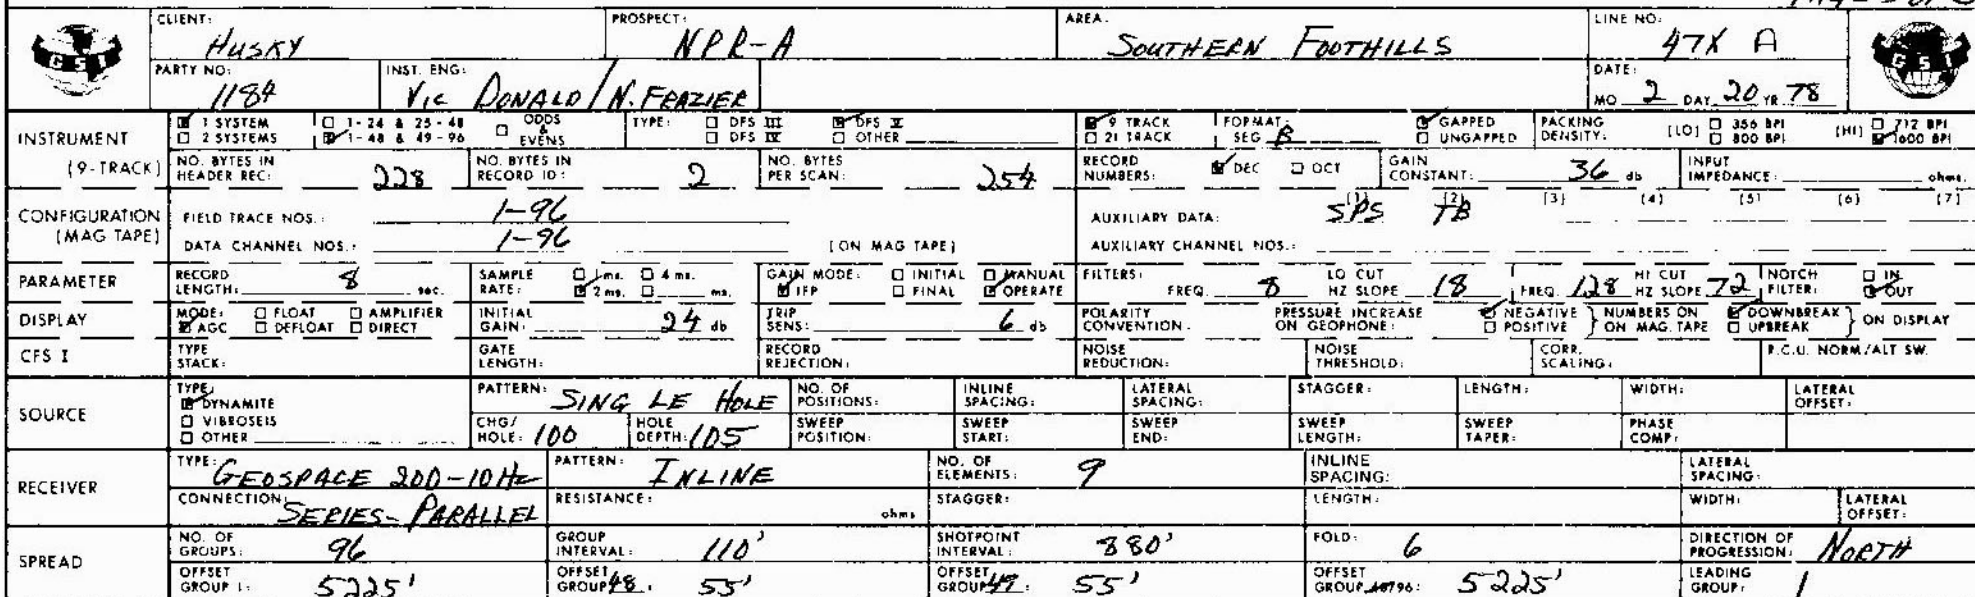 CLIENT: HUSKY PROSPECT: NPR-A AREA. SOUTHERN FOOTHILLS LINE NO: 47X A
GSI
PARTY NO: 1184 INST. ENG: VIC DONALD/N. FRAZIER DATE: MO 2 DAY 20 YR 78
GSI
INSTRUMENT (9-TRACK)
1 SYSTEM 1-24 & 25-48 ODDS & EVENS TYPE: DFS III DFS V 9 TRACK FORMAT: SEG B GAPPED PACKING DENSITY: [LO] 356 BPI [HI] 712 BPI
2 SYSTEMS 1-48 & 49-96 DFS IV OTHER 21 TRACK UNGAPPED 800 BPI 1600 BPI
NO. BYTES IN HEADER REC: 228 NO. BYTES IN RECORD ID: 2 NO. BYTES PER SCAN: 254 RECORD NUMBERS: DEC OCT GAIN CONSTANT: 36 db INPUT IMPEDANCE: ohms.
CONFIGURATION (MAG TAPE)
FIELD TRACE NOS.: 1-96 AUXILIARY DATA: (1) SPS (2) TB (3) (4) (5) (6) (7)
DATA CHANNEL NOS.: 1-96 [ON MAG TAPE] AUXILIARY CHANNEL NOS.:
PARAMETER RECORD LENGTH: 8 sec. SAMPLE RATE: 1 ms. 4 ms. 2 ms. ms. GAIN MODE: INITIAL MANUAL IFP FINAL OPERATE FILTERS: FREQ 8 LO CUT HZ SLOPE 18 FREQ. 128 HI CUT HZ SLOPE 72 NOTCH FILTER: IN OUT
DISPLAY MODE: FLOAT AMPLIFIER AGC DEFLOAT DIRECT INITIAL GAIN: 24 db TRIP SENS: 6 db POLARITY CONVENTION. PRESSURE INCREASE ON GEOPHONE: NEGATIVE POSITIVE NUMBERS ON ON MAG. TAPE DOWNBREAK UPBREAK ON DISPLAY
CFS I TYPE STACK: GATE LENGTH: RECORD REJECTION: NOISE REDUCTION: NOISE THRESHOLD: CORR. SCALING: R.C.U. NORM/ALT SW.
SOURCE TYPE: DYNAMITE VIBROSEIS OTHER PATTERN: SINGLE HOLE NO. OF POSITIONS: INLINE SPACING: LATERAL SPACING: STAGGER: LENGTH: WIDTH: LATERAL OFFSET:
CHG/HOLE: 100 HOLE DEPTH: 105 SWEEP POSITION: SWEEP START: SWEEP END: SWEEP LENGTH: SWEEP TAPER: PHASE COMP:
RECEIVER TYPE: GEOSPACE 20D-10Hz PATTERN: INLINE NO. OF ELEMENTS: 9 INLINE SPACING: LATERAL SPACING:
CONNECTION: SERIES-PARALLEL RESISTANCE: ohms STAGGER: LENGTH: WIDTH: LATERAL OFFSET:
SPREAD NO. OF GROUPS: 96 GROUP INTERVAL: 110' SHOTPOINT INTERVAL: 880' FOLD: 6 DIRECTION OF PROGRESSION: NORTH
OFFSET GROUP 1: 5225' OFFSET GROUP 48: 55' OFFSET GROUP 49: 55' OFFSET GROUP 96: 5225' LEADING GROUP: 1